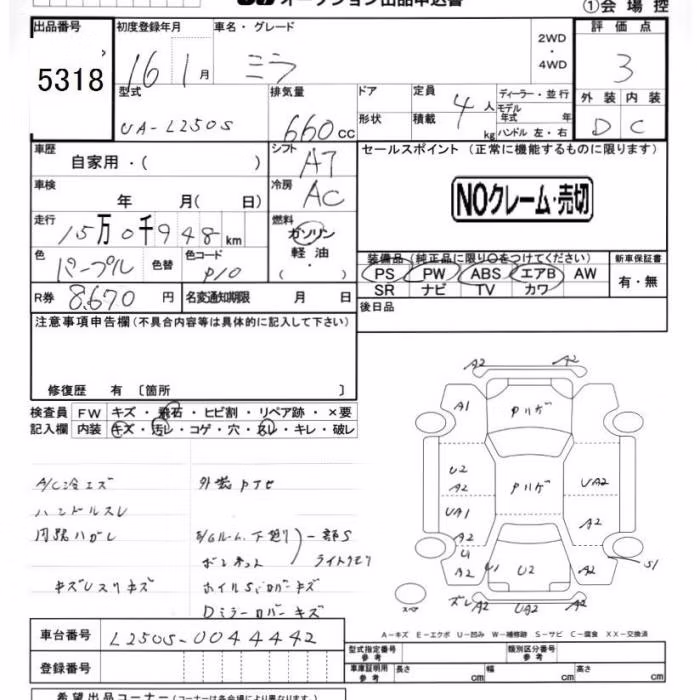 オークション出品申込書 ①会場控
出品番号 初度登録年月 車名・グレード 2WD・4WD 評価点
5318 16 1月 ミラ 3
型式 排気量 ドア 定員 4人 ディーラー・並行 外装 内装
UA-L250S 660cc 形状 積載 kg モデル年式 年 D C
ハンドル 左・右
車歴 自家用・( ) シフト AT セールスポイント (正常に機能するものに限ります)
車検 年 月( 日) 冷房 AC NOクレーム・売切
走行 15万0千948km 燃料 ガソリン 軽油 ・( )
色 パープル 色替 色コード P10 装備品 (純正品に限り○をつけてください) 新車保証書
PS PW ABS エアB AW 有・無
SR ナビ TV カワ
R券 8,670円 名変通知期限 月 日 後日品
注意事項申告欄(不具合内容等は具体的に記入して下さい)
修復歴 有 〔箇所 〕
検査員 FW キズ・飛石・ヒビ割・リペア跡・×要
記入欄 内装 キズ・汚レ・コゲ・穴・スレ・キレ・破レ
A/C冷エズ
ハンドルスレ
内張ハガレ
キズUスリキズ
外装
下廻り 一部S
ボンネット ライトクモリ
ホイルS,カバーキズ
Dミラーカバーキズ
A2 A2
A1 クリハゲ
U2
A2 クリハゲ UA2
UA1 A2
A2
U1
A2 U1 U2 A2 S1
ズレA2 UA2 A2
スペア
A-キズ E-エクボ U-凹み W-補修跡 S-サビ C-腐食 XX-交換済
車台番号 L250S-0044442
登録番号
型式指定番号 参考 類別区分番号 参考
車庫証明用 参考 長さ cm 幅 cm 高さ cm
希望出品コーナー(コーナーは各会場により異なります。)